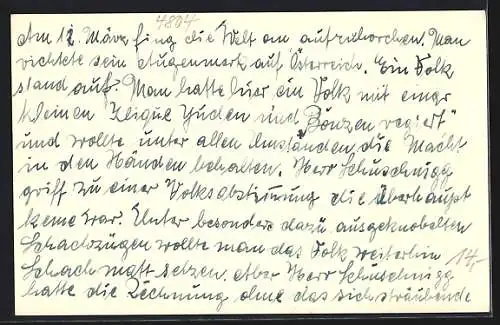 4804
Am 12. März fing die Welt an aufzuhorchen. Man
richtete sein Augenmerk auf Österreich. Ein Volk
stand auf. Man hatte hier ein Volk mit einer
kleinen Zlique Juden und "Bonzen regiert"
und wollte unter allen Umständen die Macht
in den Händen behalten. Herr Schuschnigg
griff zu einer Volksabstimung die überhaupt
keine war. Unter besonders dazu ausgeknobelten
Schachzügen wollte man das Volk weiterhin
14,-
Schach matt setzen, aber Herr Schuschnigg
hatte die Rechnung ohne das sich sträubende